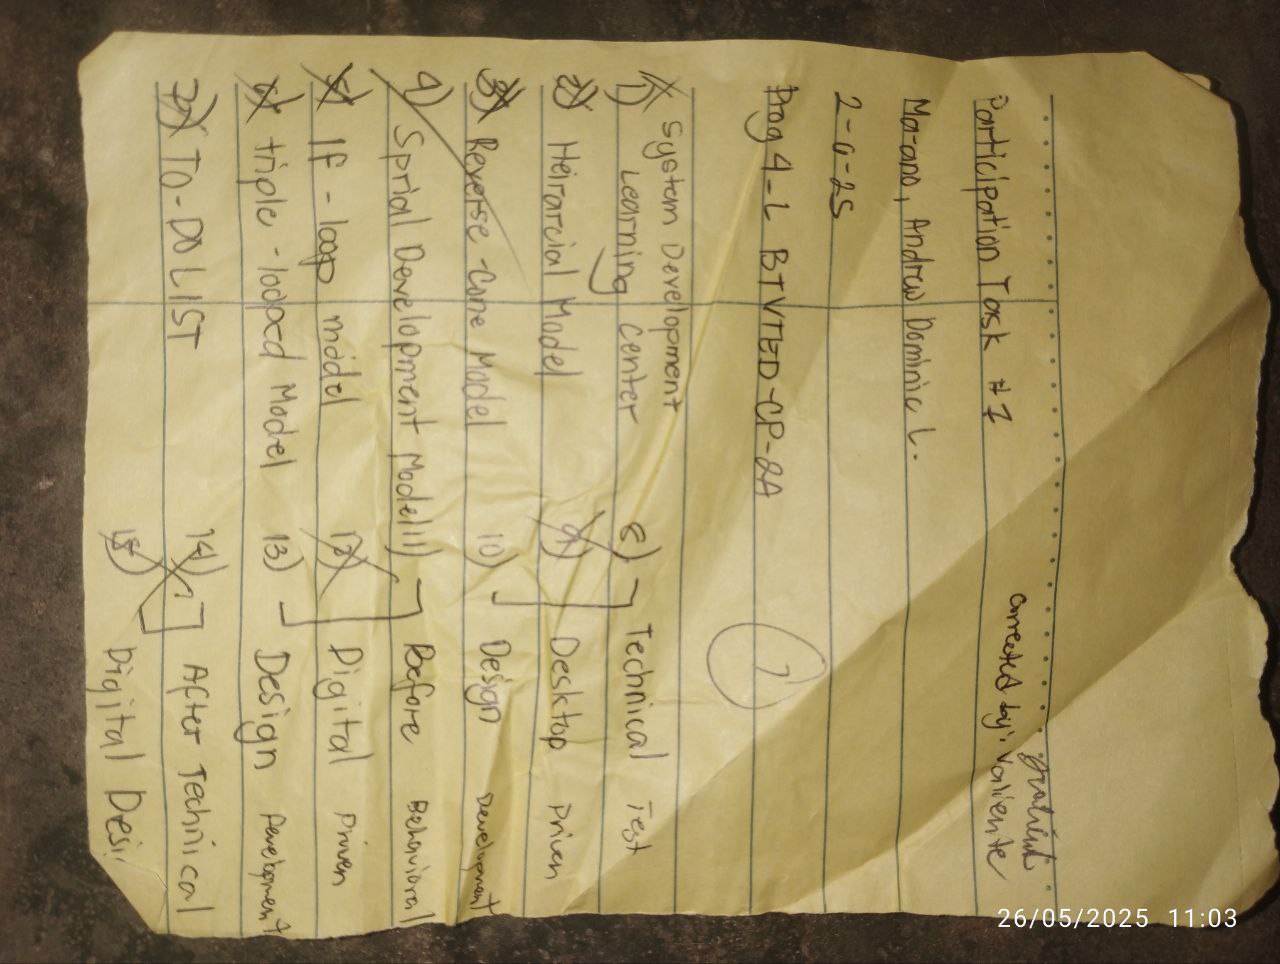 26/05/2025 11:03
Corrected by: Valiente
Participation Task #7
Ma-ano, Andrew Dominic L.
2-6-25
Prog 4-L BTVTED-CP-2A
7
1) System Development
Learning Center
2) Heirarcial Model
3) Reverse-Cone Model
4) Sprial Development Model
5) If-loop model
6) triple-looped Model
7) TO-DO LIST
8) Technical Test
9) Desktop Driven
10) Design Development
11) Before Behavioral
12) Digital Driven
13) Design Development
14) After Technical
15) Digital Desi